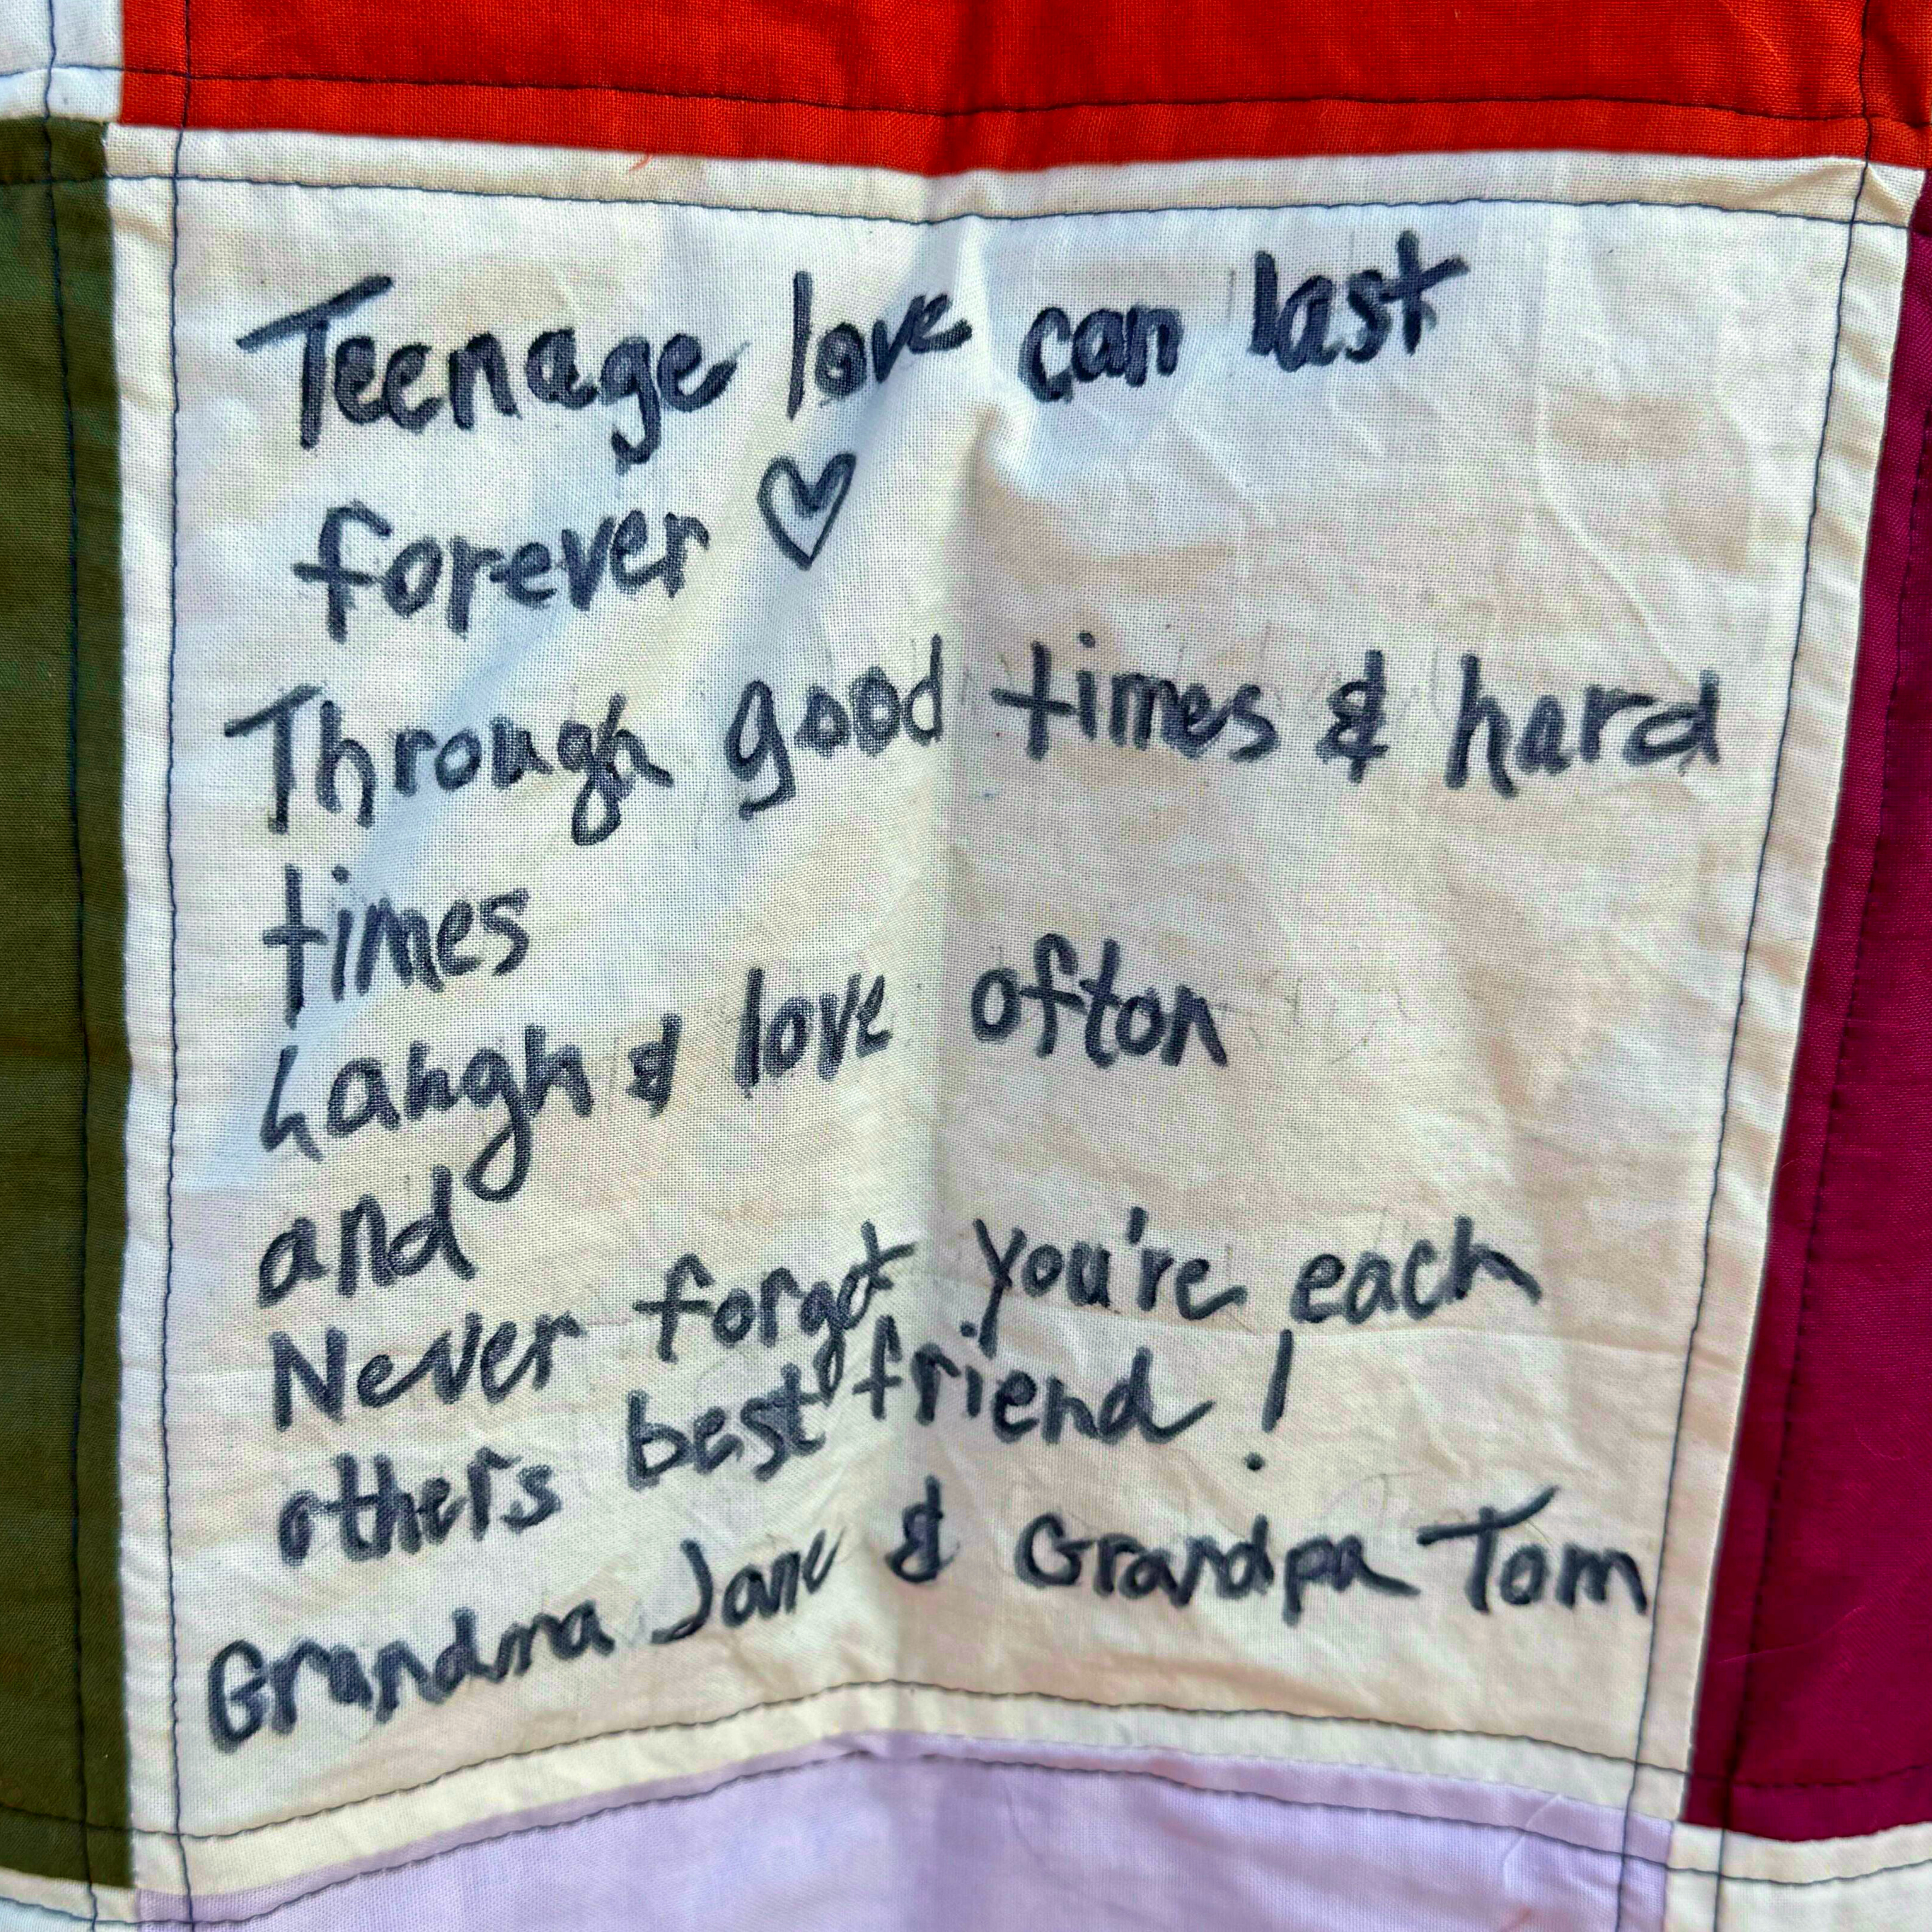 Teenage love can last
forever ♡
Through good times & hard
times
Laugh & love often
and
Never forget you're each
others best friend!
Grandma Jane & Grandpa Tom